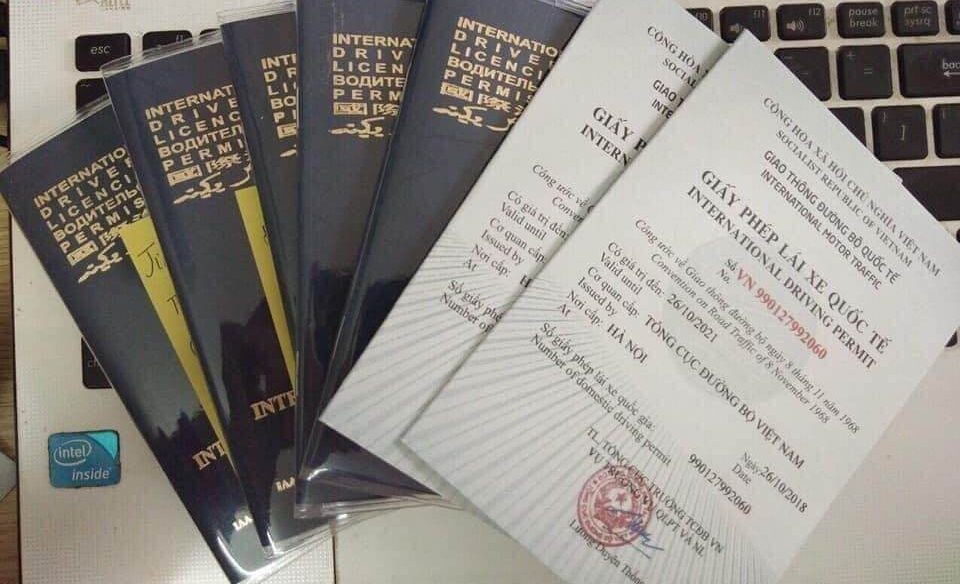 esc
f11
f12
pause
break
prt sc
sysrq
back
intel
inside
INTERNATIO
DRIVE
LICENC
ВОДИТЕЛЬ
PERMIS
INT
INTERNAT
DRIVE
LICENC
ВОДИТЕЛЬ
PERMI
INTE
INTE
DRI
LICE
ВОДИ
PER
INTERNAT
DRIVE
LICEN
ВОДИТЕЛ
PERM
INTERNATIO
DRIVE
LICENCI
ВОДИТЕЛЬ
PERMI
CỘNG HÒA X
SOCIALIST R
GIAO THÔN
INTER
GIẤY P
INTERN
Công ước về G
Convention
Có giá trị đến:
Valid until
Cơ quan cấp:
Issued by
Nơi cấp: H
At
Số giấy phép
Number of
CỘNG HÒA XÃ HỘI CHỦ NGHĨA VIỆT NAM
SOCIALIST REPUBLIC OF VIETNAM
GIAO THÔNG ĐƯỜNG BỘ QUỐC TẾ
INTERNATIONAL MOTOR TRAFFIC
GIẤY PHÉP LÁI XE QUỐC TẾ
INTERNATIONAL DRIVING PERMIT
Số
No. VN 990127992060
Công ước về Giao thông đường bộ ngày 8 tháng 11 năm 1968
Convention on Road Traffic of 8 November 1968
Có giá trị đến: 26/10/2021
Valid until
Cơ quan cấp: TỔNG CỤC ĐƯỜNG BỘ VIỆT NAM
Issued by
Nơi cấp: HÀ NỘI
At
Ngày 26/10/2018
Date
Số giấy phép lái xe quốc gia:
Number of domestic driving permit 990127992060
TL. TỔNG CỤC TRƯỞNG TCĐB VN
VỤ TRƯỞNG VỤ QLPT VÀ NL
Lương Duyên Thống